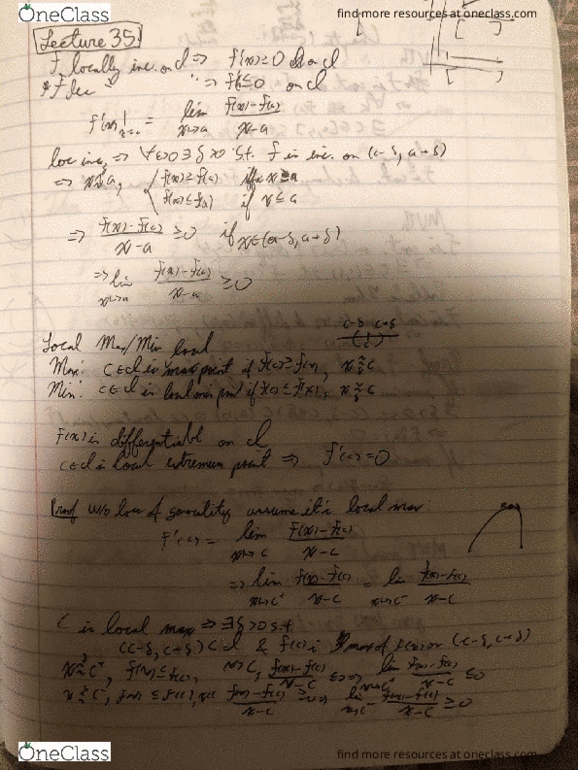 OneClass
find more resources at oneclass.com
Lecture 35
f locally inc. on cl ⇒ f'(x) ≥ 0 on cl
f dec " ⇒ f' ≤ 0 on cl
f'(x)| = lim f(x)-f(a) / x-a
x→a
loc inc, ⇒ ∃ δ>0 s.t. f is inc. on (a-δ, a+δ)
⇒ f(x) ≥ f(a) if x ≥ a
f(x) ≤ f(a) if x ≤ a
⇒ f(x)-f(a) / x-a ≥ 0 if x∈(a-δ, a+δ)
⇒ lim f(x)-f(a) / x-a ≥ 0
x→a
c-δ c+δ
Local Max/Min
Max: c∈cl is max point if f(c) ≥ f(x), x ≈ c
Min: c∈cl is local min point if f(c) ≤ f(x), x ≈ c
f(x) is differentiable on cl
c∈cl is local extremum point ⇒ f'(c)=0
Proof w/o loss of generality assume it's local max:
f'(c) = lim f(x)-f(c) / x-c
x→c
⇒ lim f(x)-f(c) / x-c = lim f(x)-f(c) / x-c
x→c⁺ x→c⁻
c is local max ⇒ ∃δ>0 s.t
(c-δ, c+δ) ⊂ cl & f(c) is max of f(x) on (c-δ, c+δ)
f(x) ≤ f(c), x>c, f(x)-f(c) / x-c ≤ 0, lim f(x)-f(c) / x-c ≤ 0
f(x) ≤ f(c), x<c f(x)-f(c) / x-c ≥ 0, lim f(x)-f(c) / x-c ≥ 0
OneClass
find more resources at oneclass.com